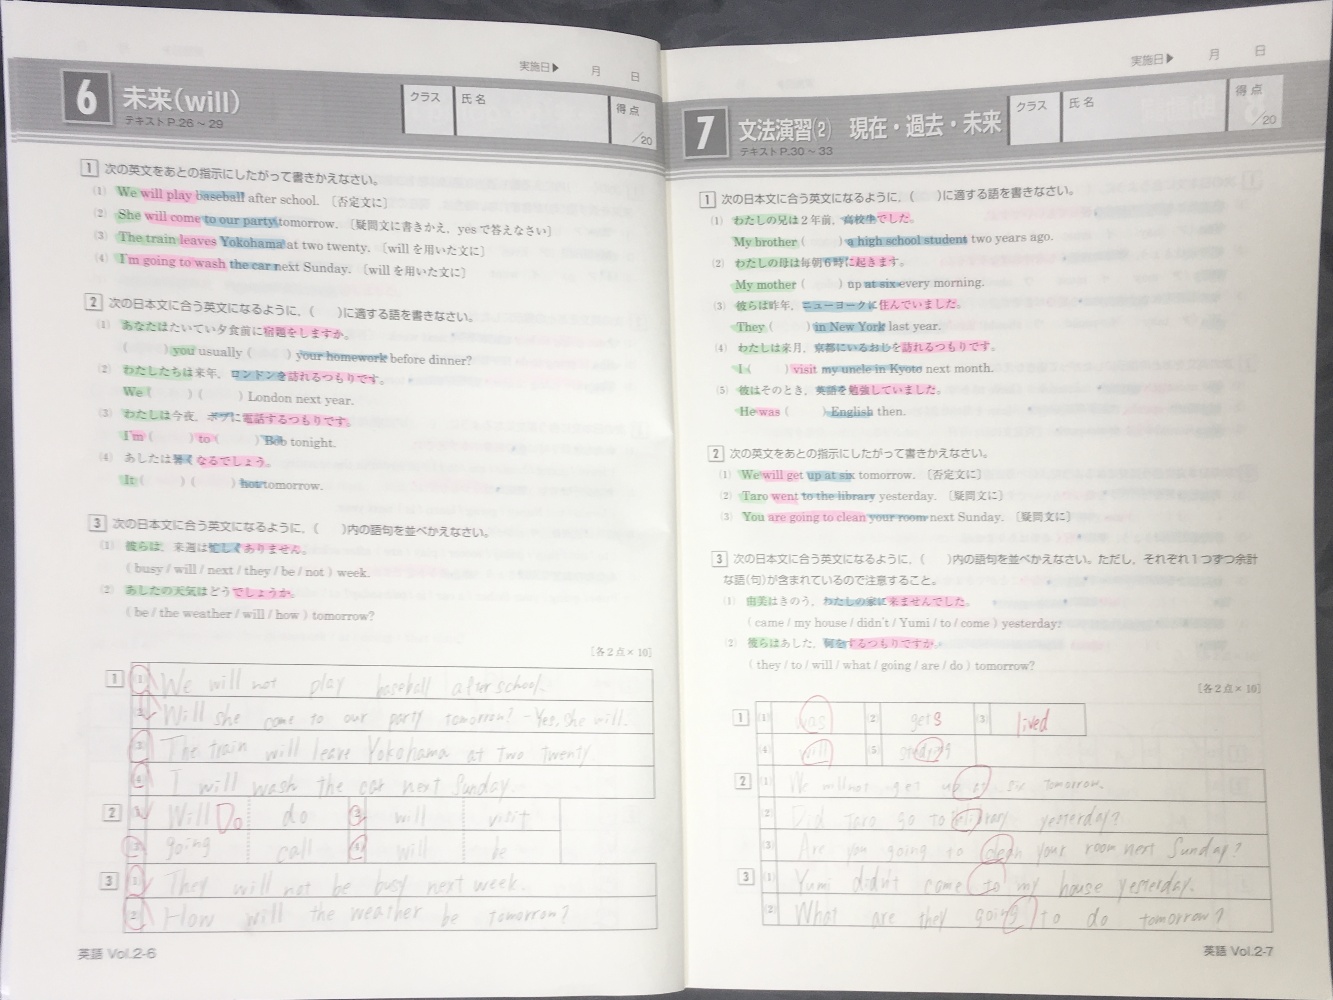 実施日▶ 月 日
6 未来(will)
テキストP.26～29
クラス 氏名 得点 /20
1 次の英文をあとの指示にしたがって書きかえなさい。
(1) We will play baseball after school. 〔否定文に〕
(2) She will come to our party tomorrow. 〔疑問文に書きかえ，yesで答えなさい〕
(3) The train leaves Yokohama at two twenty. 〔willを用いた文に〕
(4) I'm going to wash the car next Sunday. 〔willを用いた文に〕
2 次の日本文に合う英文になるように，( )に適する語を書きなさい。
(1) あなたはたいてい夕食前に宿題をしますか。
( ) you usually ( ) your homework before dinner?
(2) わたしたちは来年，ロンドンを訪れるつもりです。
We ( ) ( ) London next year.
(3) わたしは今夜，ボブに電話するつもりです。
I'm ( ) to ( ) Bob tonight.
(4) あしたは暑くなるでしょう。
It ( ) ( ) hot tomorrow.
3 次の日本文に合う英文になるように，( )内の語句を並べかえなさい。
(1) 彼らは，来週は忙しくありません。
( busy / will / next / they / be / not ) week.
(2) あしたの天気はどうでしょうか。
( be / the weather / will / how ) tomorrow?
［各2点×10］
1 (1) We will not play baseball after school.
(2) Will she come to our party tomorrow? - Yes, she will.
(3) The train will leave Yokohama at two twenty.
(4) I will wash the car next Sunday.
2 (1) Will Do do (2) will visit
(3) going call (4) will be
3 (1) They will not be busy next week.
(2) How will the weather be tomorrow?
英語 Vol.2-6
実施日▶ 月 日
7 文法演習(2) 現在・過去・未来
テキストP.30～33
クラス 氏名 得点 /20
1 次の日本文に合う英文になるように，( )に適する語を書きなさい。
(1) わたしの兄は2年前，高校生でした。
My brother ( ) a high school student two years ago.
(2) わたしの母は毎朝6時に起きます。
My mother ( ) up at six every morning.
(3) 彼らは昨年，ニューヨークに住んでいました。
They ( ) in New York last year.
(4) わたしは来月，京都にいるおじを訪れるつもりです。
I ( ) visit my uncle in Kyoto next month.
(5) 彼はそのとき，英語を勉強していました。
He was ( ) English then.
2 次の英文をあとの指示にしたがって書きかえなさい。
(1) We will get up at six tomorrow. 〔否定文に〕
(2) Taro went to the library yesterday. 〔疑問文に〕
(3) You are going to clean your room next Sunday. 〔疑問文に〕
3 次の日本文に合う英文になるように，( )内の語句を並べかえなさい。ただし，それぞれ1つずつ余計
な語(句)が含まれているので注意すること。
(1) 由美はきのう，わたしの家に来ませんでした。
( came / my house / didn't / Yumi / to / come ) yesterday.
(2) 彼らはあした，何をするつもりですか。
( they / to / will / what / going / are / do ) tomorrow?
［各2点×10］
1 (1) was (2) gets (3) lived
(4) will (5)
2 (1) We will not get up at six tomorrow.
(2) Did Taro go to library yesterday?
(3) Are you going to clean your room next Sunday?
3 (1) Yumi didn't come to my house yesterday.
(2) What are they going to do tomorrow?
英語 Vol.2-7